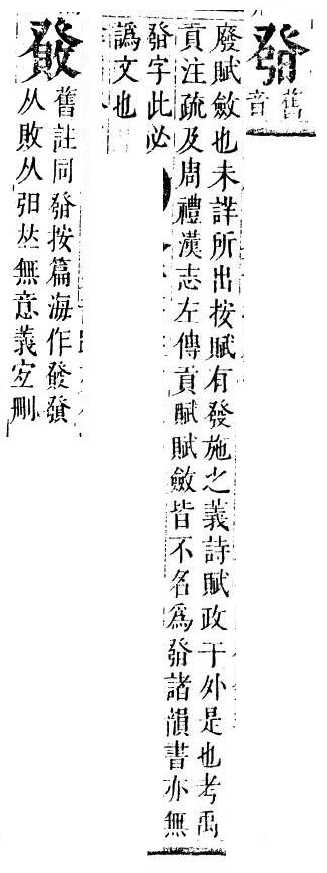 舊
音
廢賦斂也未詳所出按賦有發施之義詩賦政于外是也考禹
貢注疏及周禮漢志左傳貢賦賦斂皆不名為諸韻書亦無
字此必
譌文也
舊註同發按篇海作發
从敗从𠀤無意義宜刪